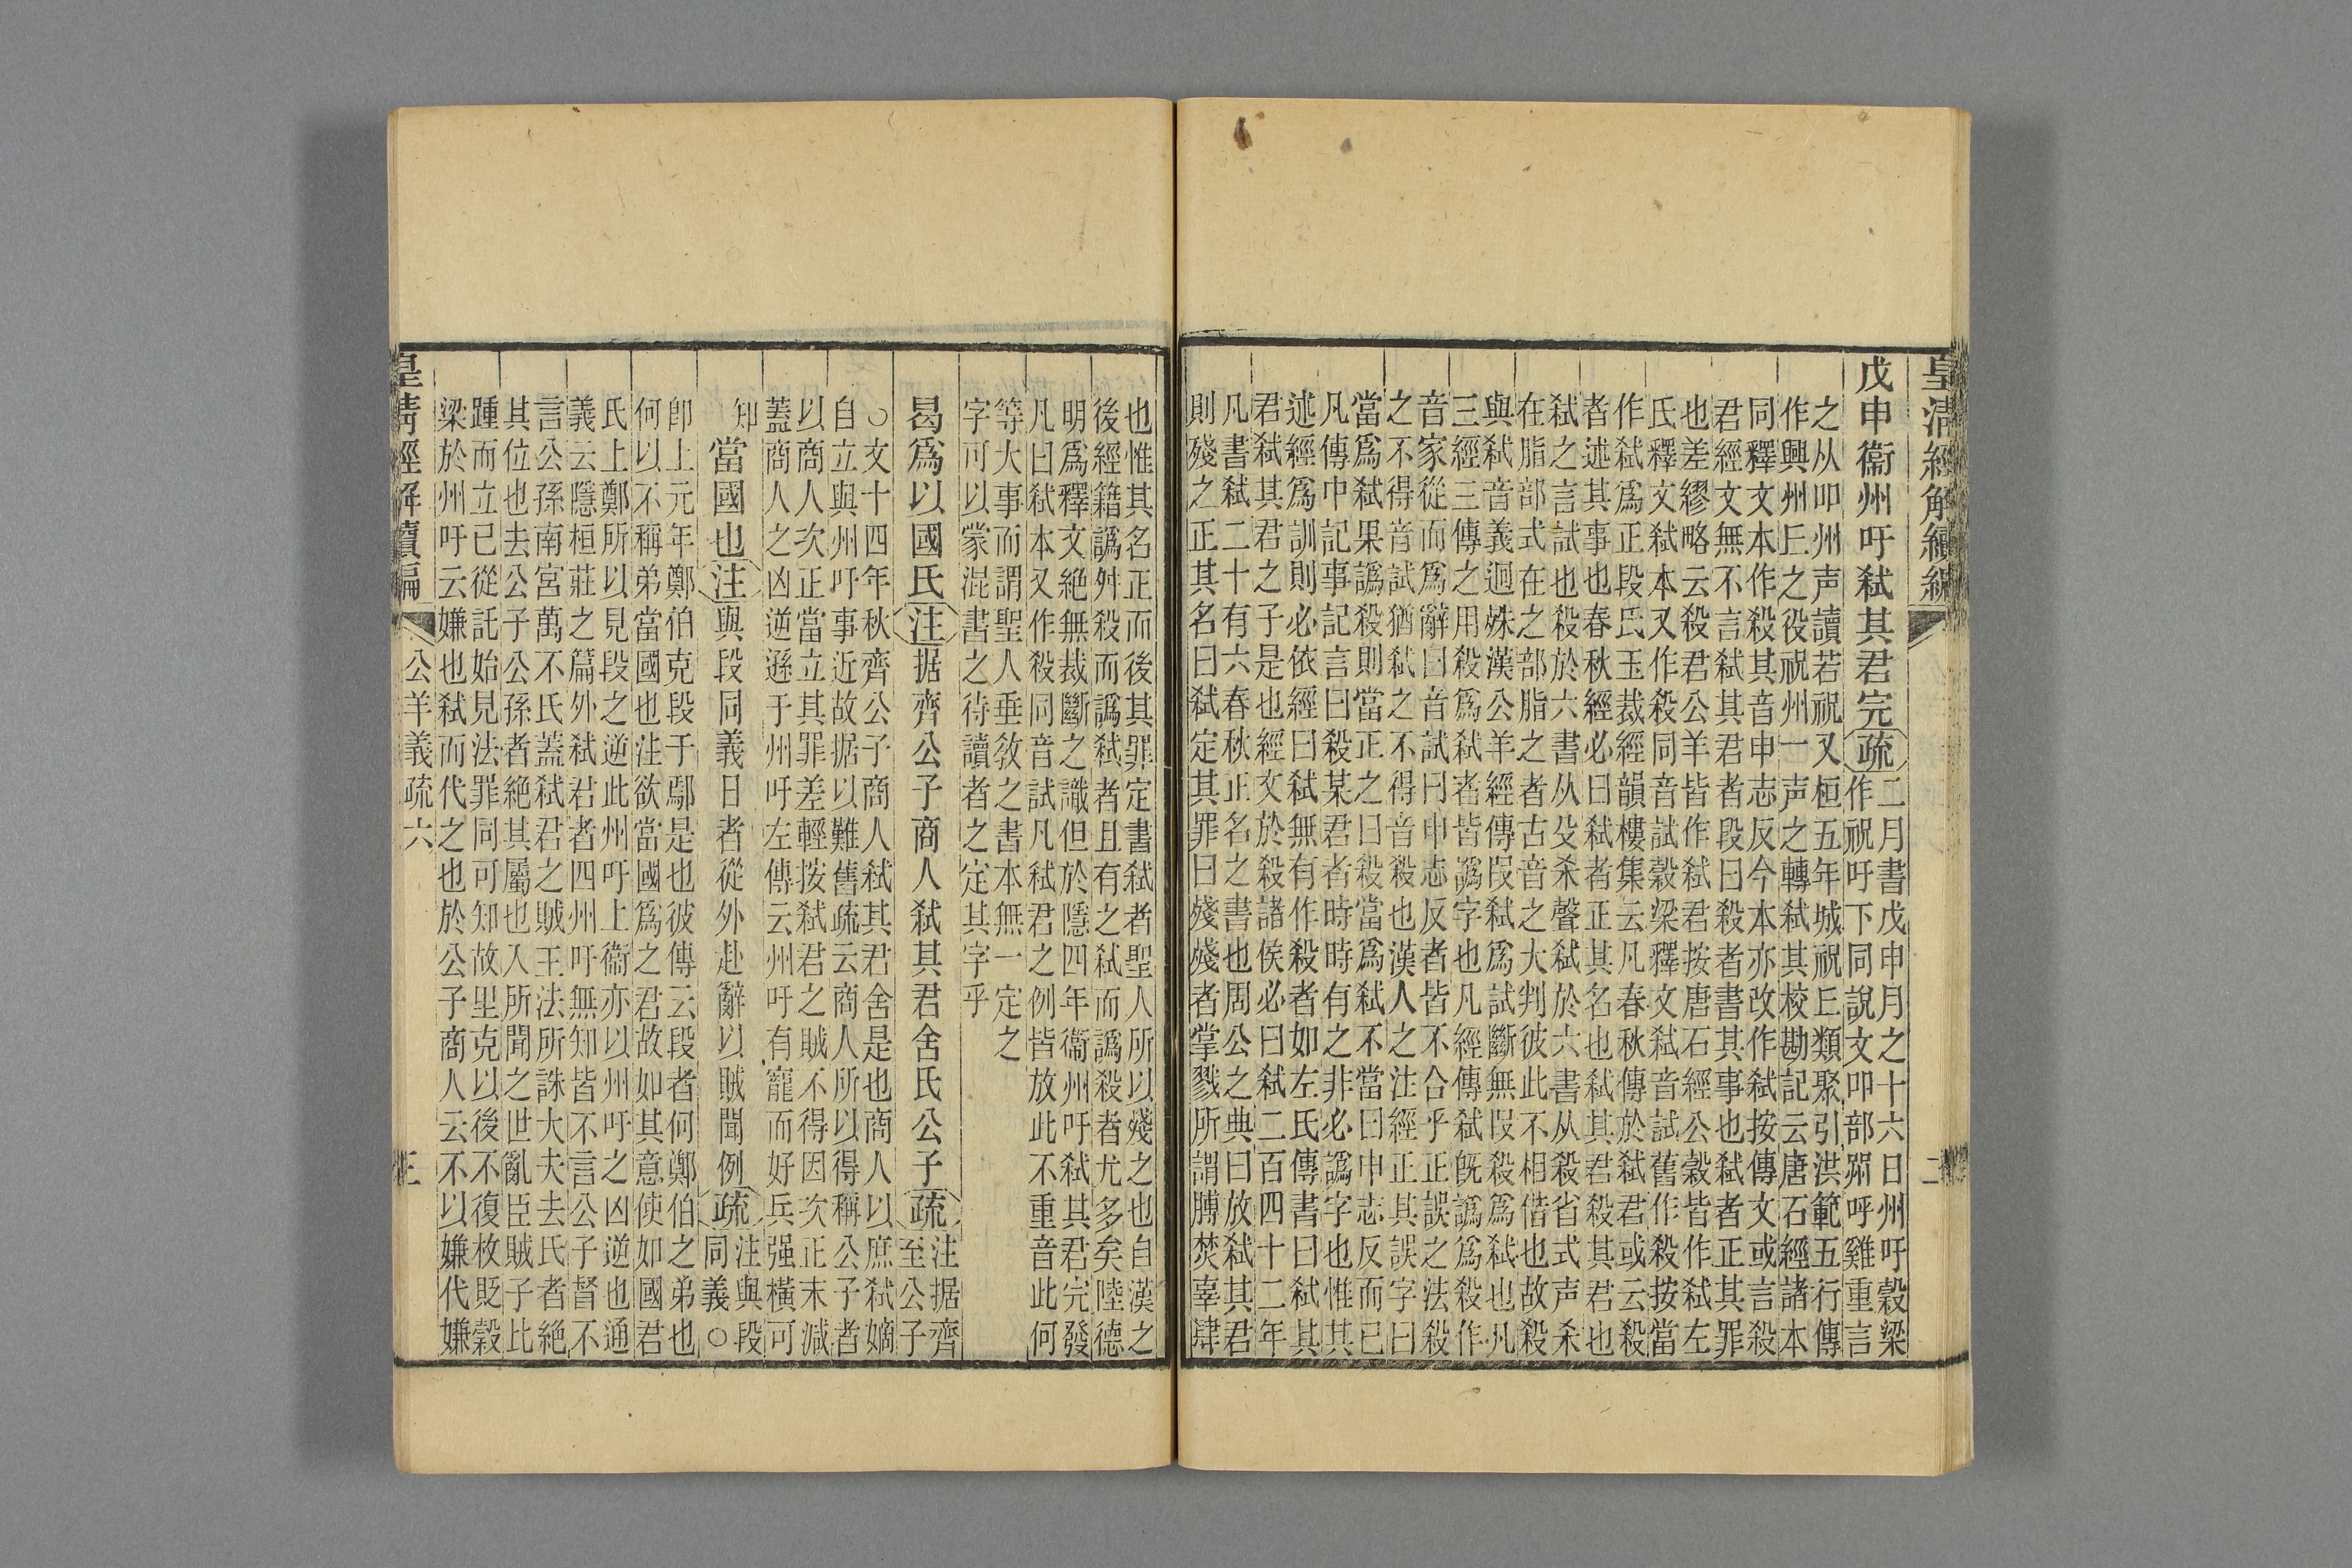 皇清經解續編
二
戊申衞州吁弒其君完疏二月書戊申月之十六日州吁穀梁
作祝吁下同說文吅部喌呼雞重言
之从吅州声讀若祝又桓五年城祝丘類聚引洪範五行傳
作興州丘之役祝州一声之轉弒其校勘記云唐石經諸本
同釋文本作殺其音申志反今本亦改作弒按傳文或言殺
君經文無不言弒其君者段曰殺者書其事也弒者正其罪
也差繆略云殺君公羊皆作弒君按唐石經公穀皆作弒左
氏釋文弒本又作殺同音試穀梁釋文弒音試舊作殺按當
作弒爲正段氏玉裁經韻樓集云凡春秋傳於弒君或云殺
者述其事也春秋經必曰弒者正其名也弒其君殺其君也
弒之言試也殺於六書从殳杀聲弒於六書从殺省式声杀
在脂部式在之部脂之者古音之大判彼此不相偕也故殺
與弒音義迥姝漢公羊經傳叚弒爲試斷無叚殺爲弒也凡
三經三傳之用殺爲弒者皆譌字也凡經傳弒旣譌爲殺作
音家從而爲辭曰音試曰申志反者皆不合乎正誤之法殺
之不得音試猶弒之不得音殺也漢人之注經正其誤字曰
當爲弒果譌殺則當正之曰殺當爲弒不當曰申志反而已
凡傳中記事記言曰殺某君者時時有之非必譌字也惟其
述經爲訓則必依經曰弒無有作殺者如左氏傳書曰弒其
君弒其君之子是也經文於殺諸侯必曰弒二百四十二年
凡書弒二十有六春秋正名之書也周公之典曰放弒其君
則殘之正其名曰弒定其罪曰殘殘者掌戮所謂膊焚辜肂
也惟其名正而後其罪定書弒者聖人所以殘之也自漢之
後經籍譌舛殺而譌弒者且有之弒而譌殺者尤多矣陸德
明爲釋文絶無裁斷之識但於隱四年衞州吁弒其君完發
凡曰弒本又作殺同音試凡弒君之例皆放此不重音此何
等大事而謂聖人垂敎之書本無一定之
字可以蒙混書之待讀者之定其字乎
曷爲以國氏注据齊公子商人弒其君舍氏公子疏注据齊
至公子
○文十四年秋齊公子商人弒其君舍是也商人以庶弒嫡
自立與州吁事近故据以難舊疏云商人所以得稱公子者
以商人次正當立其罪差輕按弒君之賊不得因次正末減
蓋商人之凶逆遜于州吁左傳云州吁有寵而好兵强橫可
知
當國也注與段同義日者從外赴辭以賊聞例疏注與段
同義○
卽上元年鄭伯克段于鄢是也彼傳云段者何鄭伯之弟也
何以不稱弟當國也注欲當國爲之君故如其意使如國君
氏上鄭所以見段之逆此州吁上衞亦以州吁之凶逆也通
義云隱桓莊之篇外弒君者四州吁無知皆不言公子督不
言公孫南宮萬不氏蓋弒君之賊王法所誅大夫去氏者絕
其位也去公子公孫者絕其屬也入所聞之世亂臣賊子比
踵而立已從託始見法罪同可知故里克以後不復枚貶穀
梁於州吁云嫌也弒而代之也於公子商人云不以嫌代嫌
皇清經解續編
公羊義疏六
三